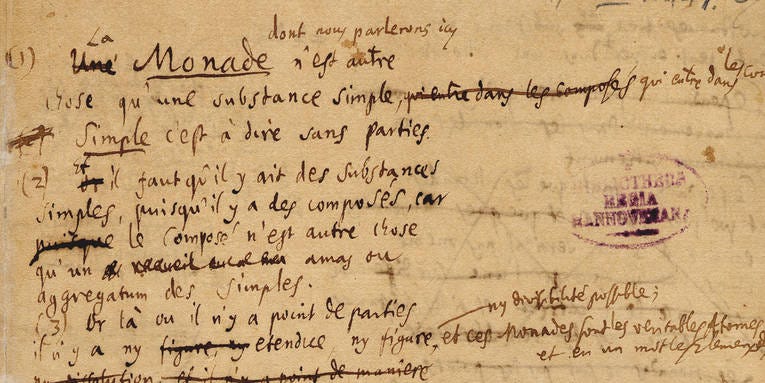 La dont nous parlerons icy
(1) Une Monade n'est autre
chose qu'une substance simple, qui entre dans les composés qui entre dans les com
Simple c'est à dire sans parties.
(2) Et il faut qu'il y ait des substances
simples, puisqu'il y a des composés, car
puisque le Composé n'est autre chose
qu'un recueil amas ou
aggregatum des simples.
(3) Or là ou il n'y a point de parties ny divisibilité possible;
il n'y a ny figure, ny etendue, ny figure, et ces Monades sont les veritables Atomes
et en un mot les Elemens
ny et il n'y a point de maniere
BIBLIOTHECA
REGIA
HANNOVERANA